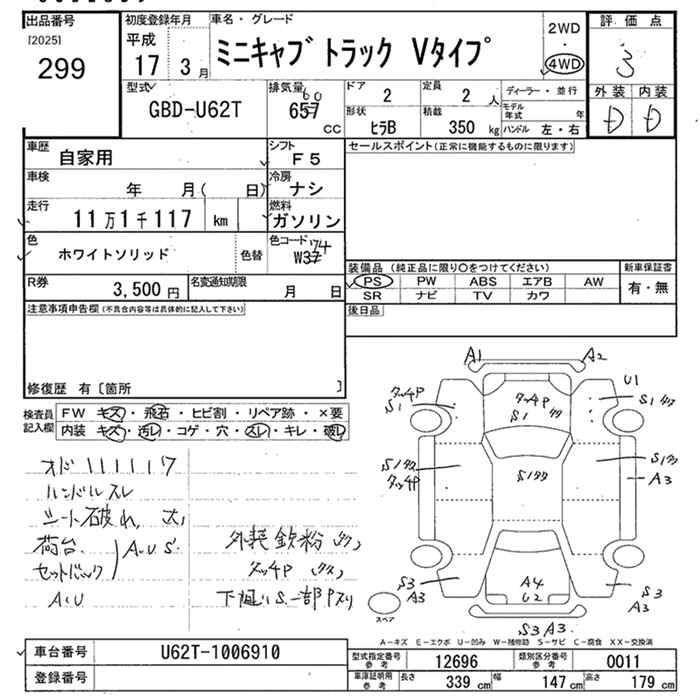 出品番号 初度登録年月 車名・グレード 評価点
[2025] 平成 2WD
299 17年 3月 ミニキャブトラック Vタイプ ・ 3
4WD
型式 排気量 60 ドア 定員 ディーラー・並行 外装 内装
GBD-U62T 657 cc 2 2人 モデル年式 年 D D
形状 積載 ハンドル 左・右
ヒラB 350 kg
車歴 シフト セールスポイント(正常に機能するものに限ります)
自家用 F5
車検 冷房
年 月( 日) ナシ
走行 燃料
11万1千117 km ガソリン
色 色替 色コード 174
ホワイトソリッド W37
装備品 (純正品に限り○をつけてください) 新車保証書
R券 名変通知期限 PS PW ABS エアB AW 有・無
3,500円 月 日 SR ナビ TV カワ
注意事項申告欄(不具合内容等は具体的に記入して下さい) 後日品
修復歴 有〔箇所 〕
検査員 FW キズ・飛石・ヒビ割・リペア跡・×要
記入欄 内装 キズ・汚レ・コゲ・穴・スレ・キレ・破レ
オド 111117
ハンドルスレ
シート破れ 大
荷台 A・U・S
セットバック
A・U
外装鉄粉
タッチP
下廻りS 一部Pヌリ
A1 A2
U1
タッチP タッチP
S1 S1 S1
S1 S1 S1
タッチP A3
S3 A4 S3
A3 U2 A3
スペア
S3 A3
A-キズ E-エクボ U-凹み W-補修跡 S-サビ C-腐食 XX-交換済
車台番号 U62T-1006910 型式指定番号 参考 12696 類別区分番号 参考 0011
登録番号 車庫証明用 参考 長さ 339 cm 幅 147 cm 高さ 179 cm